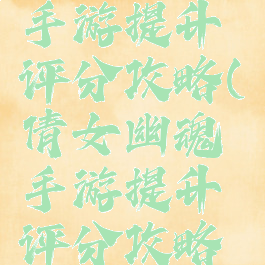 手游提升
评分攻略(
倩女幽魂
手游提升
评分攻略